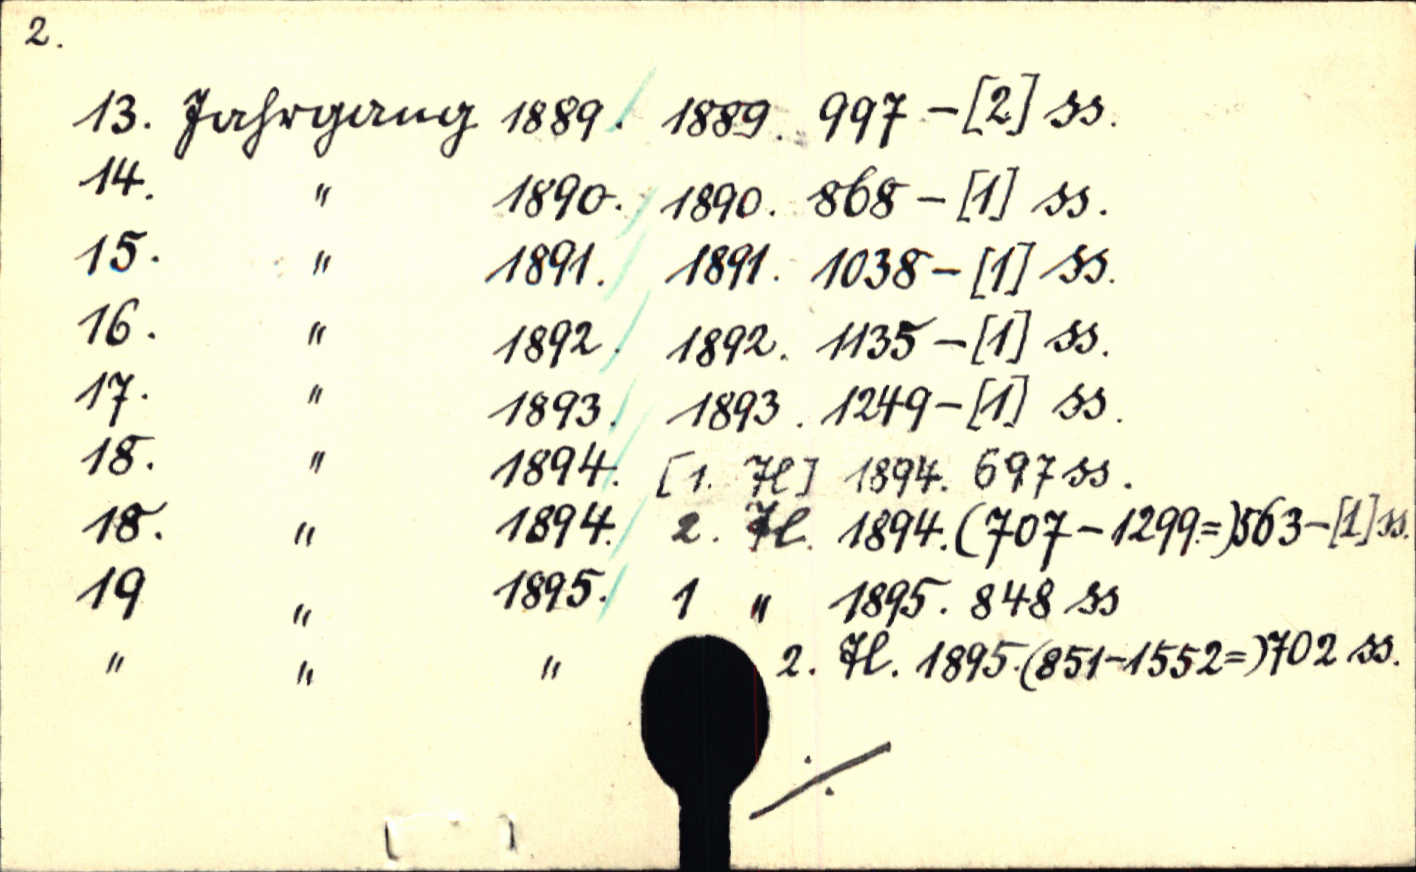 2.
13. Jahrgang 1889. 1889. 997-[2] ss.
14. " 1890. 1890. 868-[1] ss.
15. " 1891. 1891. 1038-[1] ss.
16. " 1892. 1892. 1135-[1] ss.
17. " 1893. 1893. 1249-[1] ss.
18. " 1894. [1. Tl] 1894. 697 ss.
18. " 1894. 2. Tl. 1894. (707-1299=)563-[1] ss.
19 " 1895. 1 " 1895. 848 ss
" " " 2. Tl. 1895. (851-1552=)702 ss.